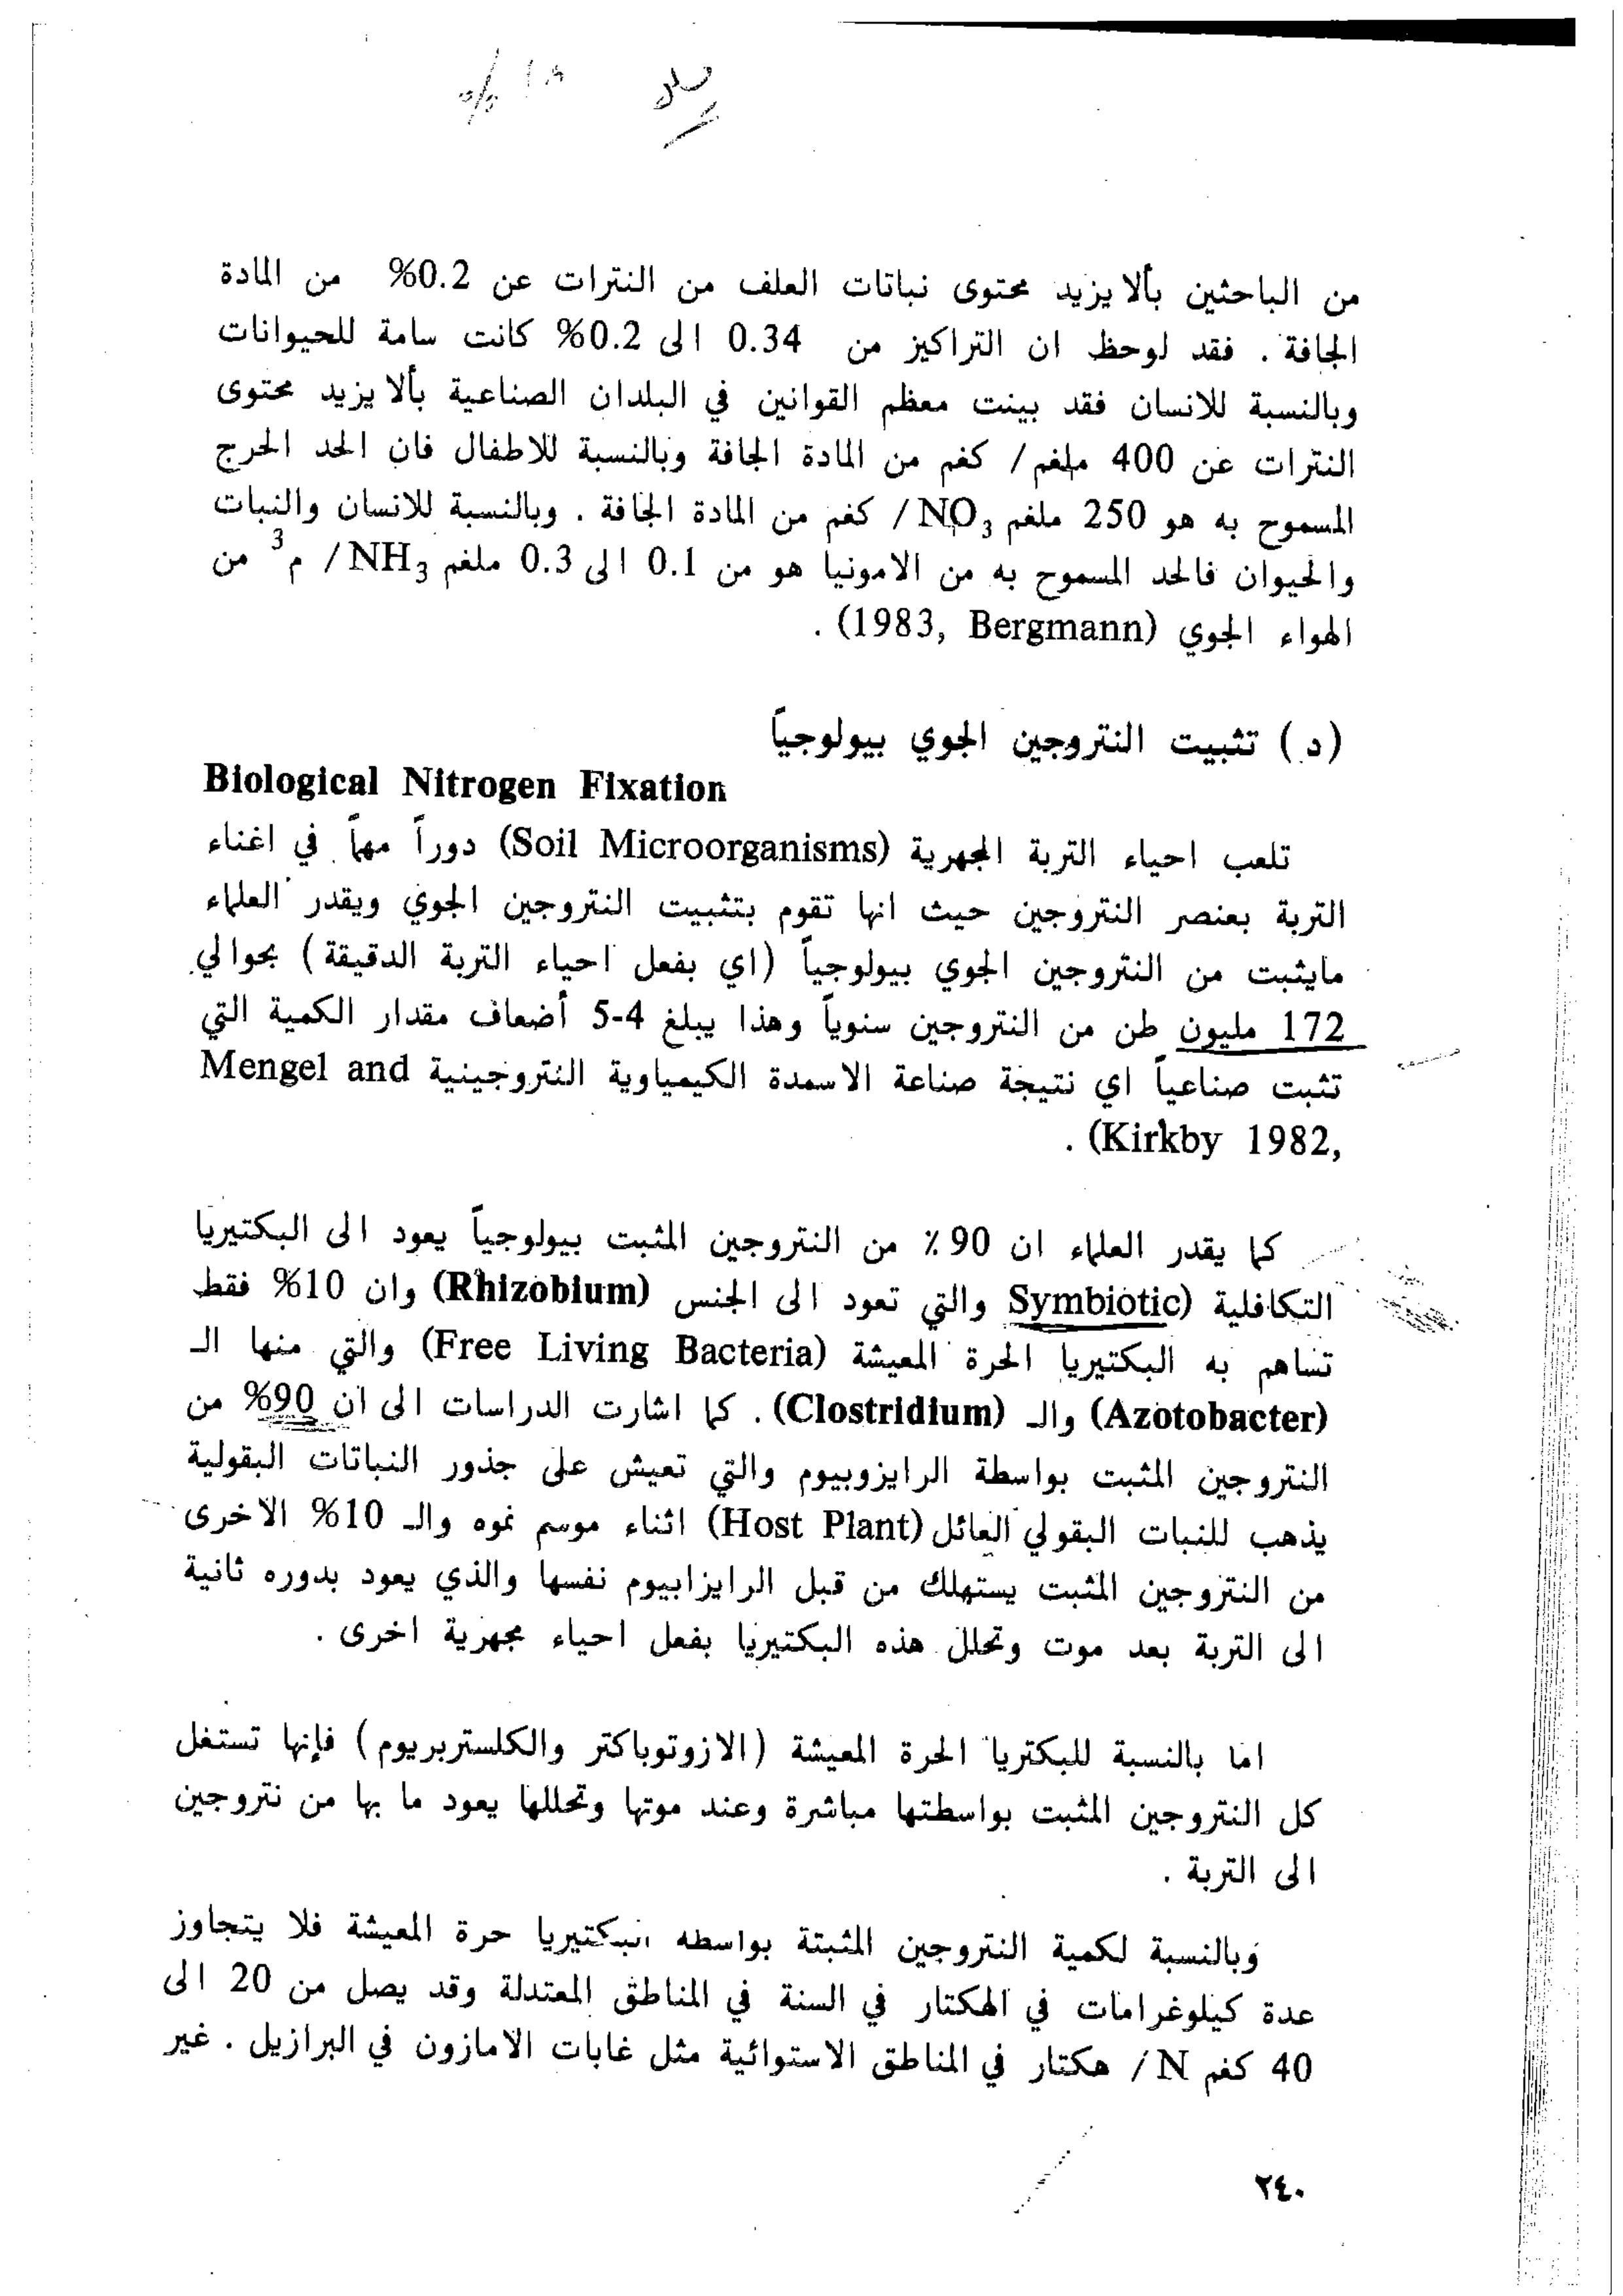 من الباحثين بألا يزيد محتوى نباتات العلف من النترات عن 0.2% من المادة
الجافة . فقد لوحظ ان التراكيز من 0.34 الى 0.2% كانت سامة للحيوانات
وبالنسبة للانسان فقد بينت معظم القوانين في البلدان الصناعية بألا يزيد محتوى
النترات عن 400 ملغم / كغم من المادة الجافة وبالنسبة للاطفال فان الحد الحرج
المسموح به هو 250 ملغم NO₃ / كغم من المادة الجافة . وبالنسبة للانسان والنبات
والحيوان فالحد المسموح به من الامونيا هو من 0.1 الى 0.3 ملغم NH₃ / م³ من
الهواء الجوي (Bergmann ,1983) .
(د) تثبيت النتروجين الجوي بيولوجياً
Biological Nitrogen Fixation
تلعب احياء التربة المجهرية (Soil Microorganisms) دوراً مهماً في اغناء
التربة بعنصر النتروجين حيث انها تقوم بتثبيت النتروجين الجوي ويقدر العلماء
مايثبت من النتروجين الجوي بيولوجياً (اي بفعل احياء التربة الدقيقة) بحوالي
172 مليون طن من النتروجين سنوياً وهذا يبلغ 4-5 أضعاف مقدار الكمية التي
تثبت صناعياً اي نتيجة صناعة الاسمدة الكيمياوية النتروجينية Mengel and
Kirkby 1982,) .
كما يقدر العلماء ان 90 ٪ من النتروجين المثبت بيولوجياً يعود الى البكتيريا
التكافلية (Symbiotic والتي تعود الى الجنس (Rhizobium) وان 10% فقط
تساهم به البكتيريا الحرة المعيشة (Free Living Bacteria) والتي منها الـ
(Azotobacter) والـ (Clostridium) . كما اشارت الدراسات الى ان 90% من
النتروجين المثبت بواسطة الرايزوبيوم والتي تعيش على جذور النباتات البقولية
يذهب للنبات البقولي العائل (Host Plant) اثناء موسم نموه والـ 10% الاخرى
من النتروجين المثبت يستهلك من قبل الرايزابيوم نفسها والذي يعود بدوره ثانية
الى التربة بعد موت وتحلل هذه البكتيريا بفعل احياء مجهرية اخرى .
اما بالنسبة للبكتريا الحرة المعيشة (الازوتوباكتر والكلستربريوم) فإنها تستغل
كل النتروجين المثبت بواسطتها مباشرة وعند موتها وتحللها يعود ما بها من نتروجين
الى التربة .
وبالنسبة لكمية النتروجين المثبتة بواسطه البكتيريا حرة المعيشة فلا يتجاوز
عدة كيلوغرامات في الهكتار في السنة في المناطق المعتدلة وقد يصل من 20 الى
40 كغم N / هكتار في المناطق الاستوائية مثل غابات الامازون في البرازيل . غير
٢٤٠